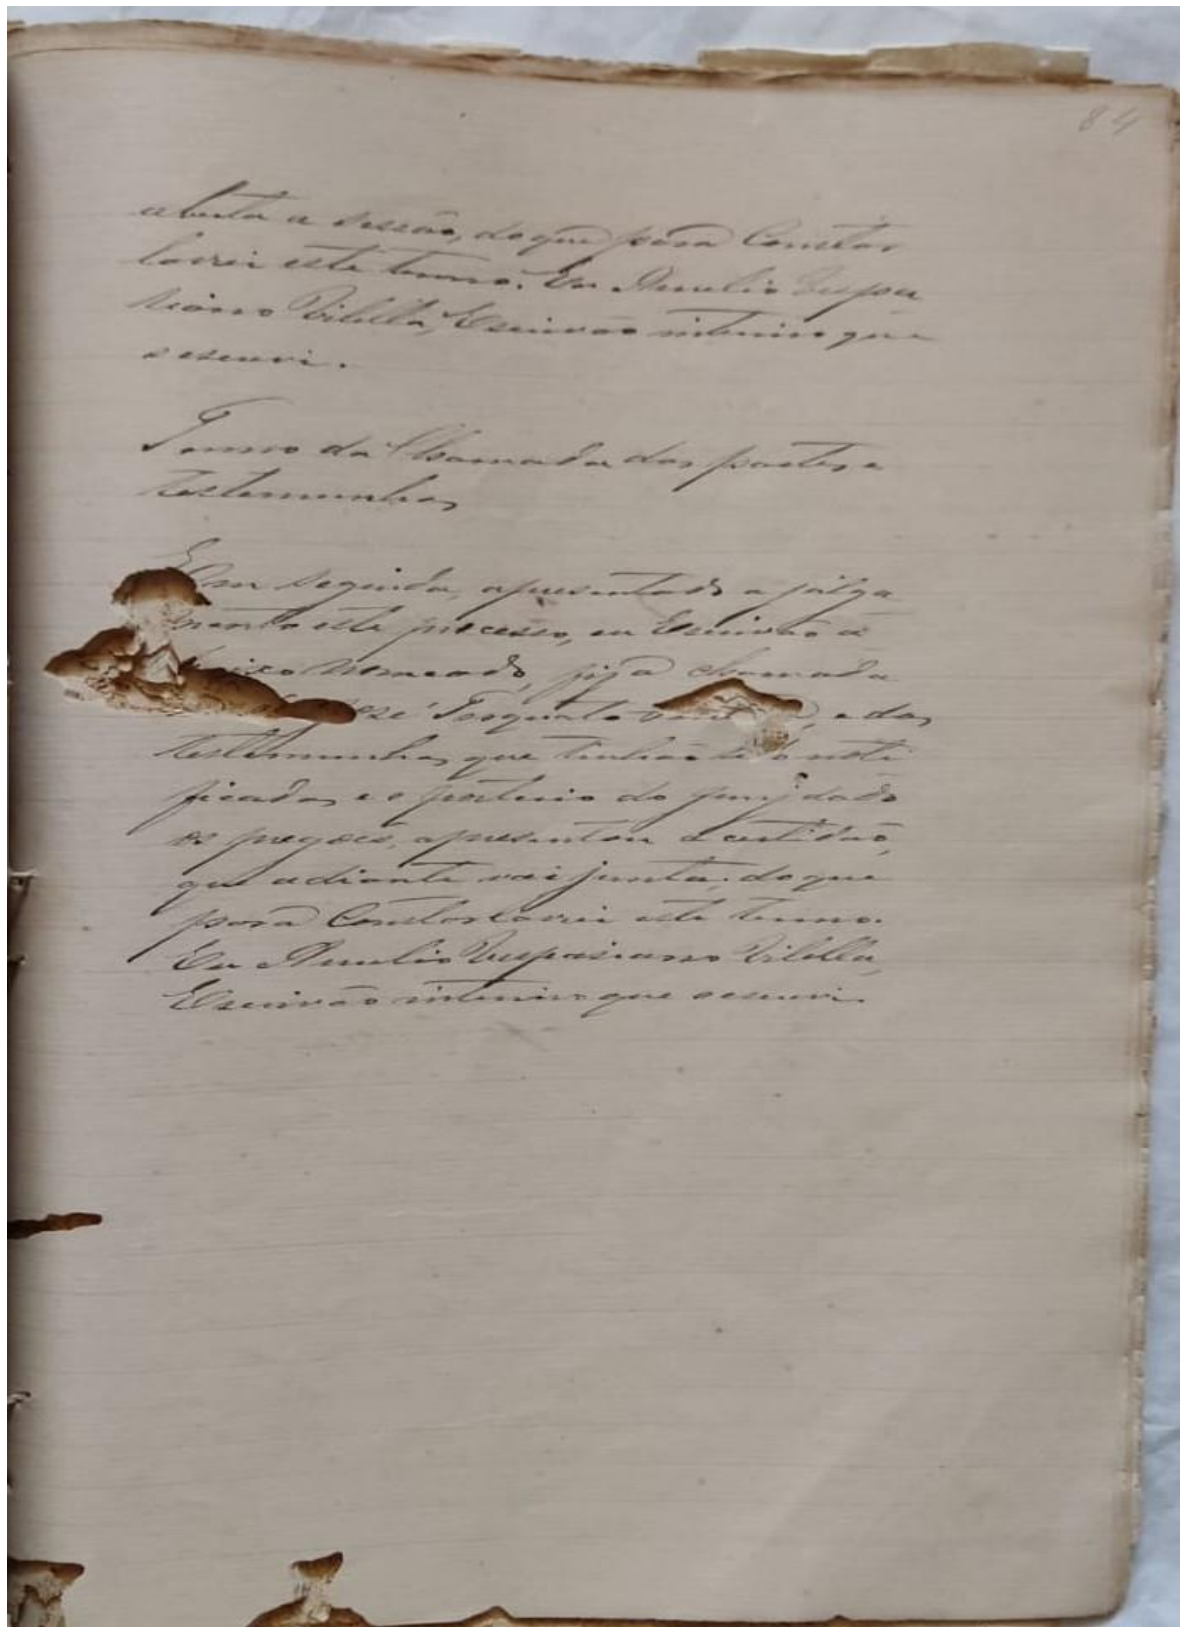 84
aberta a sessão, do que para Constar
lavrei este termo. Eu Aurelio Vespa
siano Vilella, Escrivão interino que
o escrevi.
Termo da Chamada das partes e
testemunhas
Em seguida, apresentado a julga
mento este processo, eu Escrivão a
baixo nomeado, fiz a chamada
José Torquato e das
testemunhas que tinhão sido noti
ficadas, e o porteiro do jury dado
os pregões, apresentou a certidão,
que adiante vai junta; do que
para Constar lavrei este termo.
Eu Aurelio Vespasiano Vilella,
Escrivão interino que o escrevi.